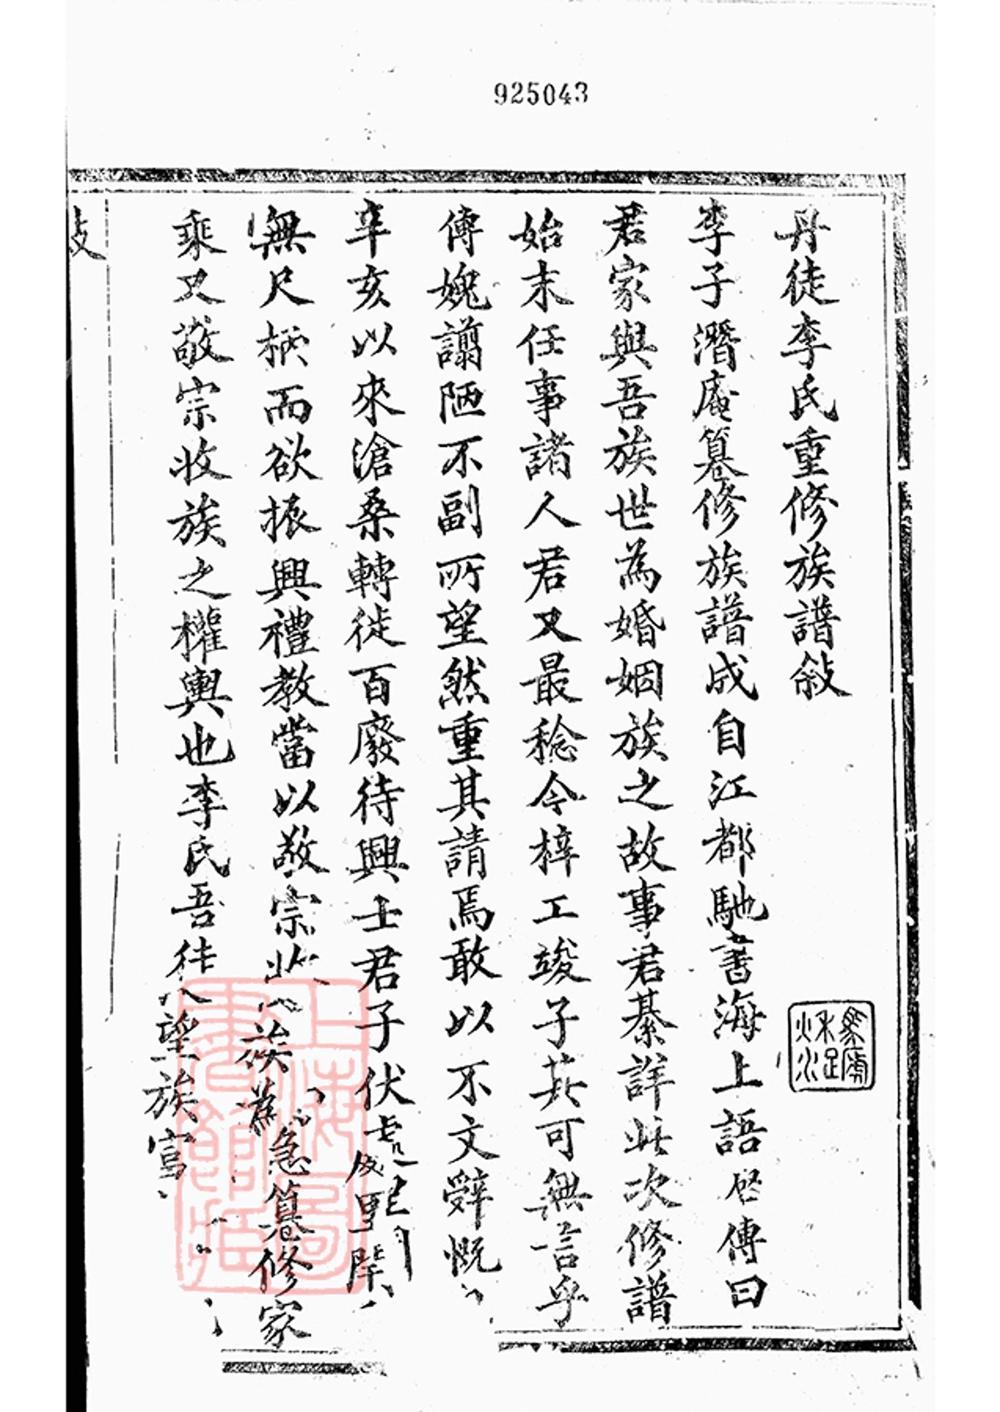 925043
丹徒李氏重修族譜敘
李子潛庵纂修族譜成自江都馳書海上語啓傳曰
君家與吾族世為婚姻族之故事君綦詳此次修譜
始末任事諸人君又最稔今梓工竣子其可無言乎
傳媿謭陋不副所望然重其請焉敢以不文辭慨
辛亥以來滄桑轉徙百廢待興士君子伏處
里閈
無尺柄而欲振興禮教當以敬宗收族為急纂修家
乘又敬宗收族之權輿也李氏吾徒望族富
上海圖書館藏